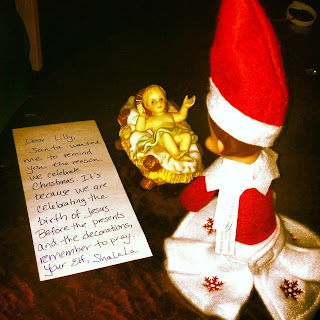 Dear Lilly,
Santa wanted
me to remind
you the reason
we celebrate
Christmas. It's
because we are
celebrating the
birth of Jesus.
Before the presents
and the decorations,
remember to pray.
Your Elf, ShaLaLa